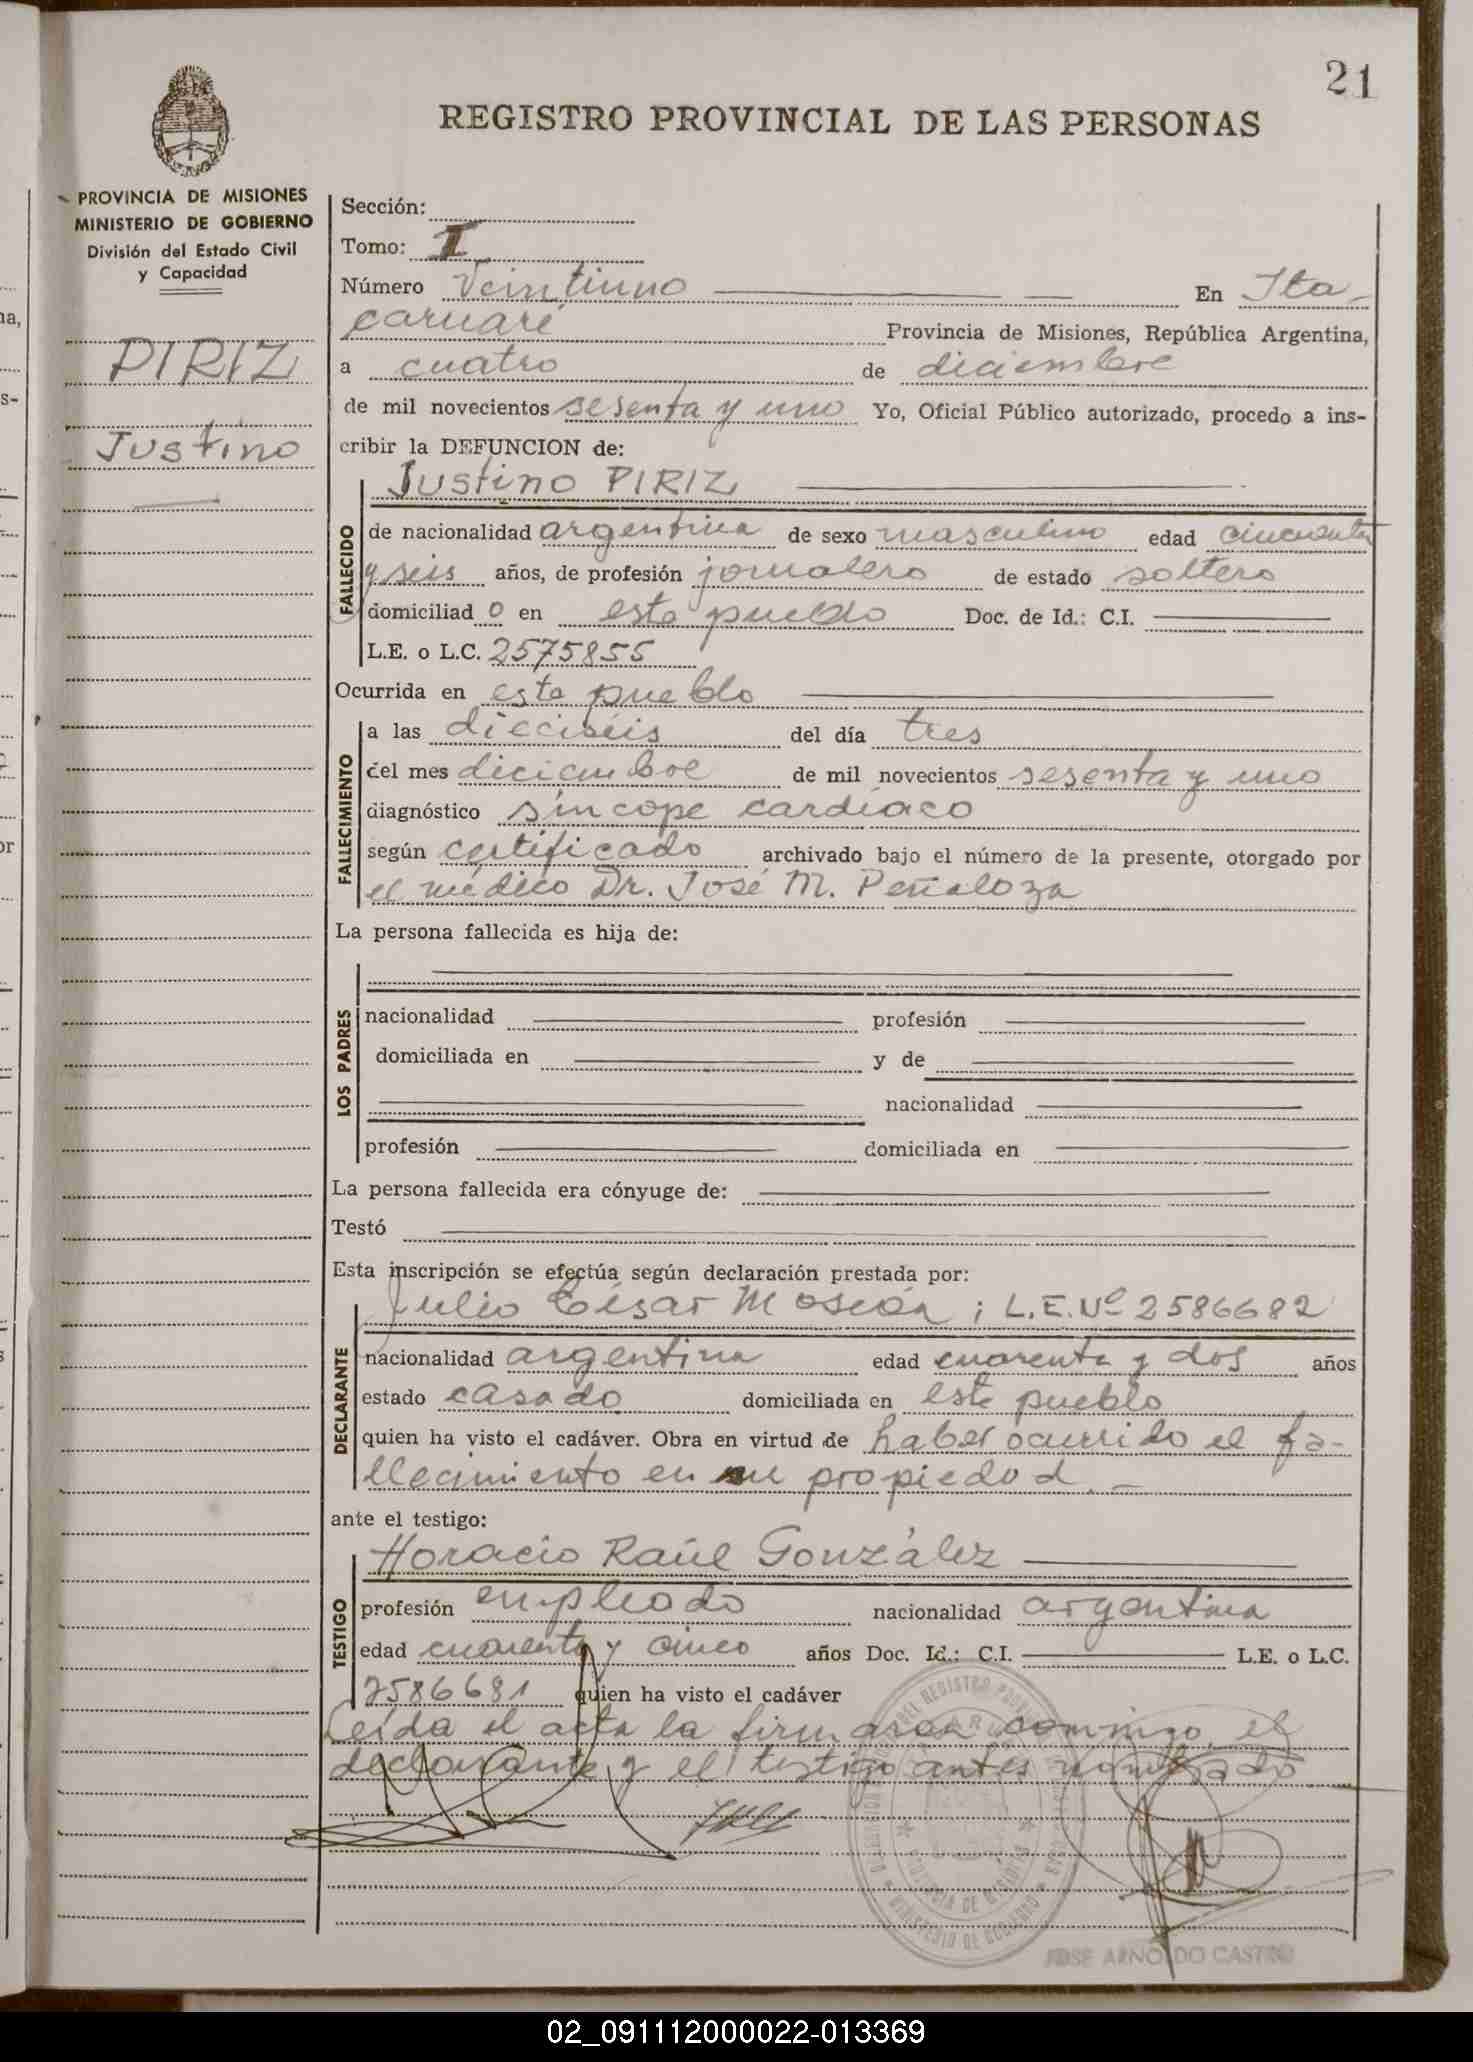 21
REGISTRO PROVINCIAL DE LAS PERSONAS
PROVINCIA DE MISIONES
MINISTERIO DE GOBIERNO
División del Estado Civil
y Capacidad
PIRIZ
Justino
Sección:
Tomo: I
Número Veintiuno En Ita-
caruaré Provincia de Misiones, República Argentina,
a cuatro de diciembre
de mil novecientos sesenta y uno Yo, Oficial Público autorizado, procedo a ins-
cribir la DEFUNCION de:
Justino PIRIZ
FALLECIDO
de nacionalidad argentina de sexo masculino edad cincuenta
y seis años, de profesión jornalero de estado soltero
domiciliad o en este pueblo Doc. de Id.: C.I.
L.E. o L.C. 2575855
Ocurrida en este pueblo
FALLECIMIENTO
a las dieciséis del día tres
del mes diciembre de mil novecientos sesenta y uno
diagnóstico síncope cardíaco
según certificado archivado bajo el número de la presente, otorgado por
el médico Dr. José M. Peñaloza
La persona fallecida es hija de:
LOS PADRES
nacionalidad profesión
domiciliada en y de
nacionalidad
profesión domiciliada en
La persona fallecida era cónyuge de:
Testó
Esta inscripción se efectúa según declaración prestada por:
Julio César ; L.E. Nº 2586682
DECLARANTE
nacionalidad argentina edad cuarenta y dos años
estado casado domiciliada en este pueblo
quien ha visto el cadáver. Obra en virtud de haber ocurrido el fa-
llecimiento en su propiedad.-
ante el testigo:
Horacio Raúl González
TESTIGO
profesión empleado nacionalidad argentina
edad cuarenta y cinco años Doc. Id.: C.I. L.E. o L.C.
2586681 quien ha visto el cadáver
Leída el acta la firmaron conmigo, el
declarante y el testigo antes nombrado
PROVINCIA DE MISIONES
MINISTERIO DE GOBIERNO
JOSE ARNOLDO CASTRO
02_091112000022-013369